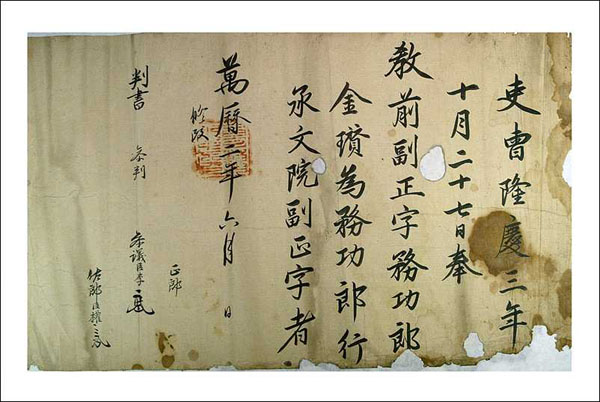 吏曹隆慶三年
十月二十七日奉
教前副正字務功郎
金璸為務功郎行
承文院副正字者
萬曆二年六月 日
修改
判書 參判 參議臣李 正郎
佐郎臣權